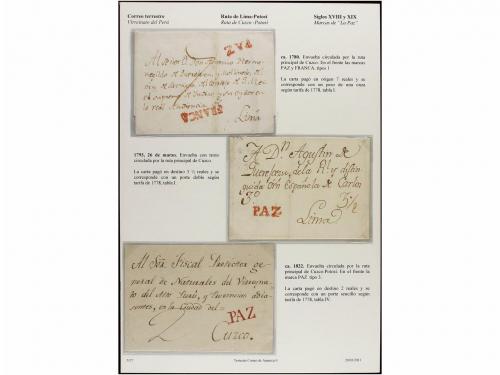 Correo terrestre
Virreinato del Perú
Ruta de Lima-Potosí
Ruta de Cuzco -Potosí
Siglos XVIII y XIX
Marcas de "La Paz"
PAZ
FRANCA
Lima
ca. 1780. Envuelta circulada por la ruta
principal de Cuzco. En el frente las marcas
PAZ y FRANCA, tipos 1
La carta pagó en origen 7 reales y se
corresponde con un peso de una onza
según tarifa de 1778, tabla I.
1793, 26 de marzo. Envuelta con texto
circulada por la ruta principal de Cuzco.
La carta pagó en destino 3 ½ reales y se
corresponde con un porte doble según
tarifa de 1778, tabla I.
A Dn Agustin de
de la Rl y distin
guida Orn Española de Carlos
3º
3½
PAZ
Lima
Al Sór Fiscal Protector ge
neral de Naturales del Virreyna
to del Alto Perú, y Provincias adia
sentes, en la Ciudad del
2
PAZ
Cuzco.
ca. 1822. Envuelta circulada por la ruta
principal de Cuzco-Potosí. En el frente la
marca PAZ tipo 3.
La carta pagó en destino 2 reales y se
corresponde con un porte sencillo según
tarifa de 1778, tabla IV.